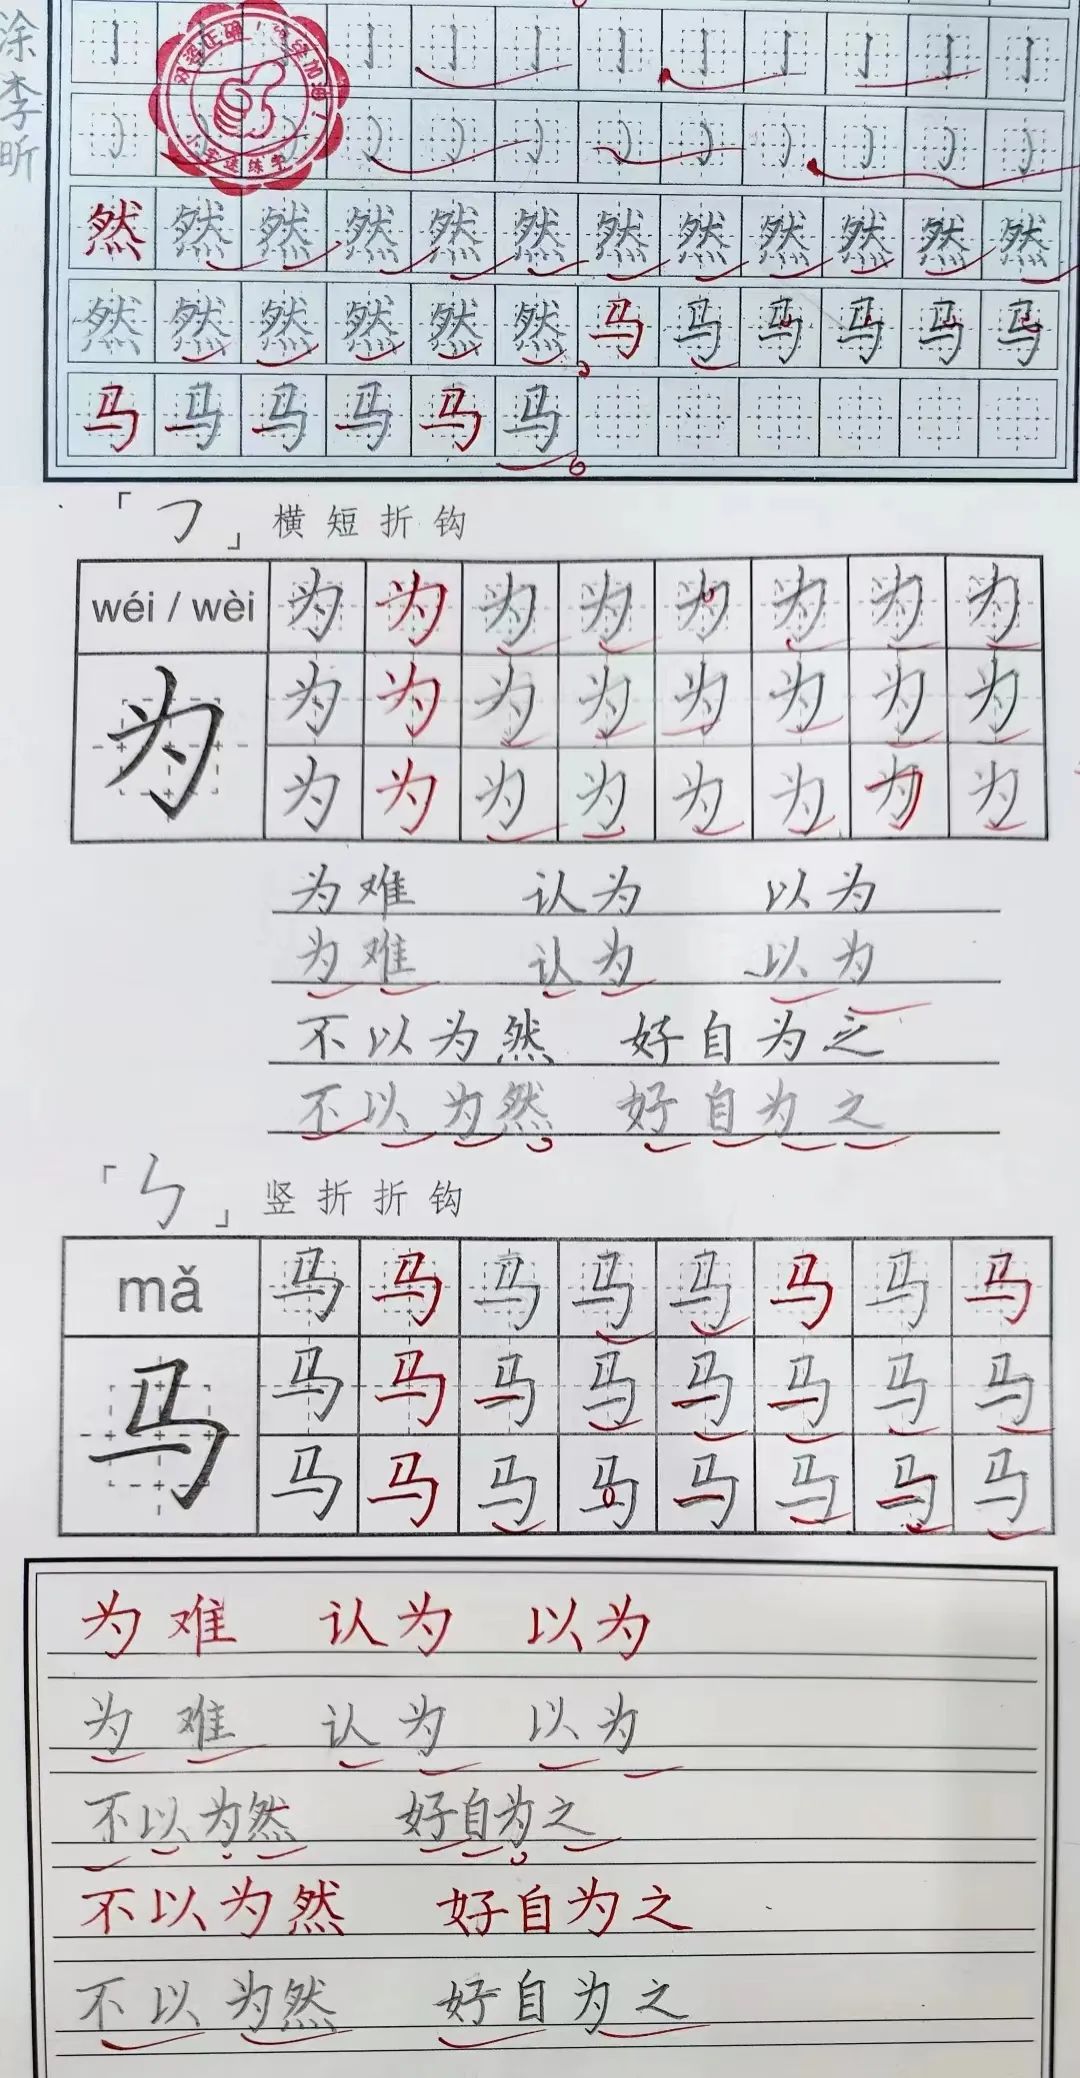 涂李昕
双姿正确！
小字速练字
然 然 然 然 然 然 然 然 然 然 然 然
然 然 然 然 然 然 马 马 马 马 马 马
马 马 马 马 马 马
「㇆」横短折钩
wéi / wèi 为 为 为 为 为 为 为 为
为 为 为 为 为 为 为 为 为
为 为 为 为 为 为 为 为
为难 认为 以为
为难 认为 以为
不以为然 好自为之
不以为然 好自为之
「㇉」竖折折钩
mǎ 马 马 马 马 马 马 马 马
马 马 马 马 马 马 马 马 马
马 马 马 马 马 马 马 马
为难 认为 以为
为难 认为 以为
不以为然 好自为之
不以为然 好自为之
不以为然 好自为之